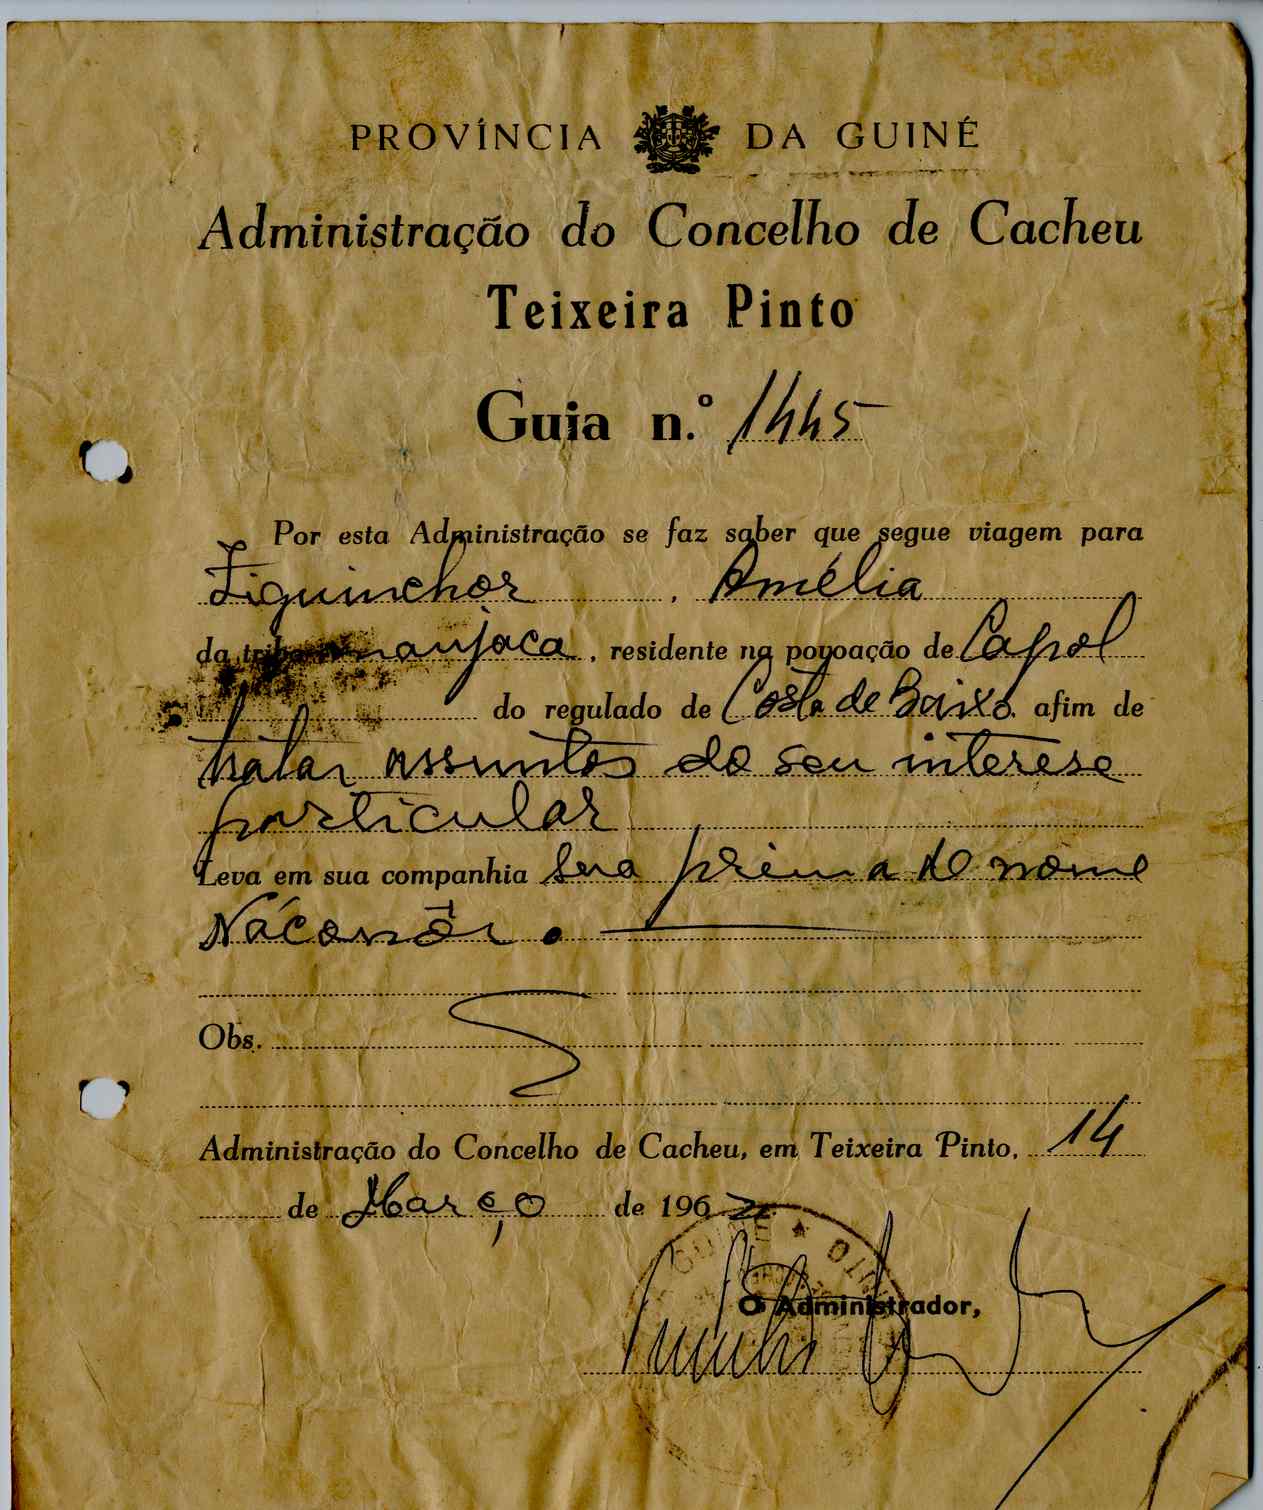 PROVÍNCIA DA GUINÉ
Administração do Concelho de Cacheu
Teixeira Pinto
Guia n.º 1445
Por esta Administração se faz saber que segue viagem para
Ziguinchor, Amélia
da tribo manjaca, residente na povoação de Capol
do regulado de Costa de Baixo, afim de
tratar assuntos do seu interese
particular
Leva em sua companhia sua prima de nome
Nácanõr.
Obs.
Administração do Concelho de Cacheu, em Teixeira Pinto, 14
de Março de 1962
GUINÉ ★
O Administrador,